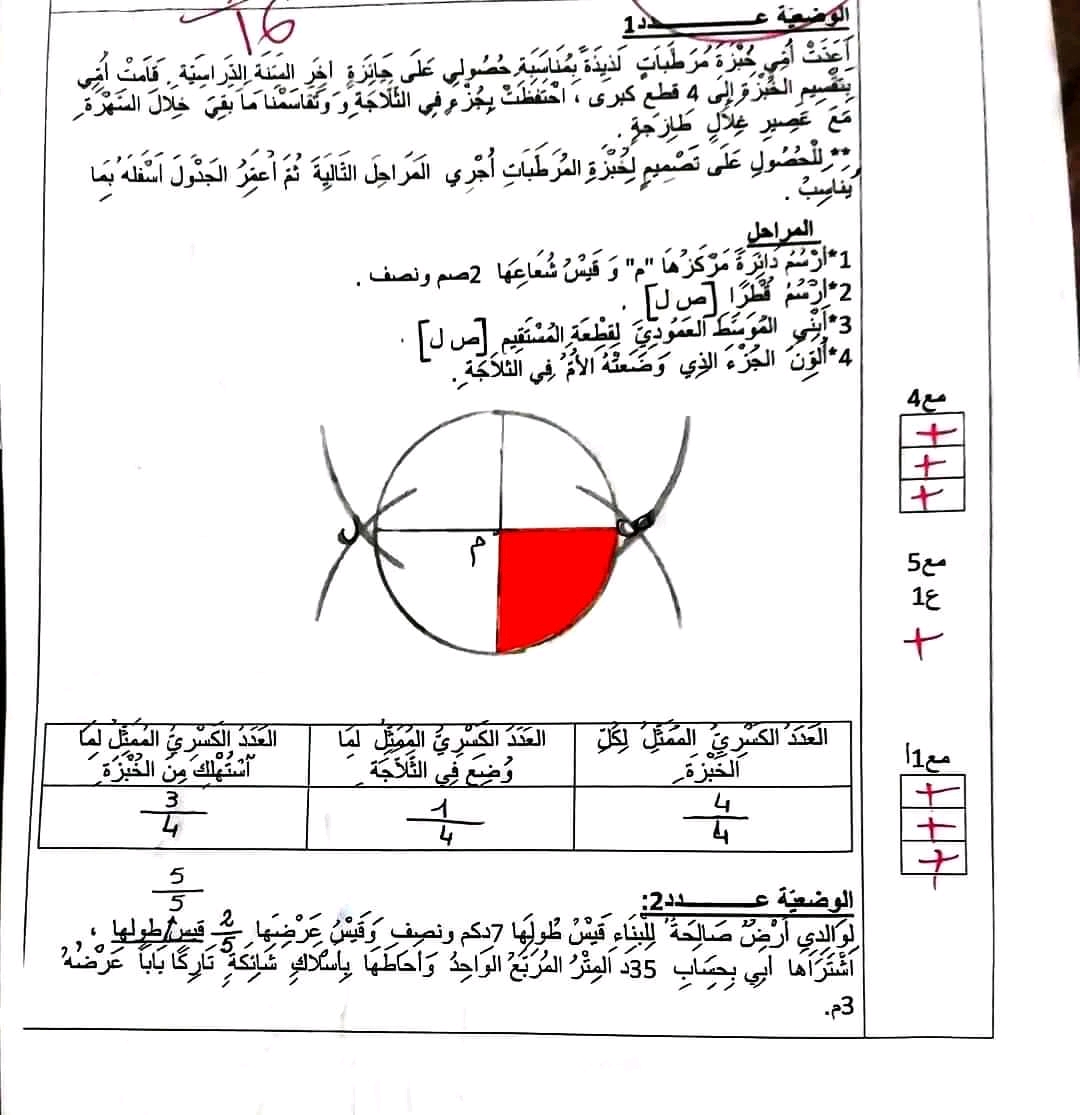 16
الوضعيّة عـــــــدد1
أَعَدَّتْ أُمِّي خُبْزَةَ مُرَطَّبَاتٍ لَذِيذَةً بِمُنَاسَبَةِ حُصُولِي عَلَى جَائِزَةٍ آخِرَ السَنَةِ الدِّرَاسِيَّةِ. قَامَتْ أُمِّي
بِتَقْسِيمِ الخُبْزَةِ إِلَى 4 قطع كبرى ، احْتَفَظَتْ بِجُزْءٍ فِي الثَّلاَّجَةِ وَ تَقَاسَمْنَا مَا بَقِيَ خِلاَلَ السَّهْرَةِ
مَعَ عَصِيرِ غِلاَلٍ طَازَجَةٍ .
** لِلْحُصُولِ عَلَى تَصْمِيمٍ لِخُبْزَةِ المُرَطَّبَاتِ أُجْرِي المَرَاحِلَ التَّالِيَةَ ثُمَّ أُعَمِّرُ الجَدْوَلَ أَسْفَلَهُ بِمَا
يُنَاسِبُ .
المراحل
1*أَرْسُمُ دَائِرَةً مَرْكَزُهَا "م" وَ قَيْسُ شُعَاعِهَا 2صم ونصف .
2*أَرْسُمُ قُطْرًا [ص ل] .
3*أَبْنِي المُوَسِّطَ العَمُودِيَّ لِقِطْعَةِ المُسْتَقِيمِ [ص ل] .
4*أُلَوِّنُ الجُزْءَ الذِي وَضَعَتْهُ الأُمُّ فِي الثَلاَجَةِ.
مع4
+
+
+
ل
م
ص
مع5
ع1
+
العَدَدُ الكَسْرِيُّ المُمَثِّلُ لِكُلِّ الخُبْزَةِ
العَدَدُ الكَسْرِيُّ المُمَثِّلُ لِمَا وُضِعَ فِي الثَّلاَّجَةِ
العَدَدُ الكَسْرِيُّ المُمَثِّلُ لِمَا اسْتُهْلِكَ مِنَ الخُبْزَةِ
4/4
1/4
3/4
مع1أ
+
+
+
5/5
الوضعيّة عـــــــدد2:
لِوَالِدِي أَرْضٌ صَالِحَةٌ لِلْبِنَاءِ قَيْسُ طُولِهَا 7دكم ونصف وَقَيْسُ عَرْضِهَا 2/5 قيس طولها ،
اشْتَرَاهَا أَبِي بِحِسَابِ 35د المِتْرُ المُرَبَّعُ الوَاحِدُ وَأَحَاطَهَا بِأَسْلاَكٍ شَائِكَةٍ تَارِكًا بَابًا عَرْضُهُ
3م.